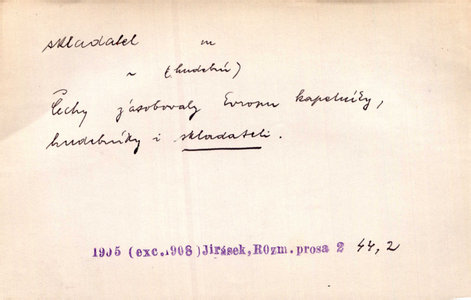 skladatel m
~ (hudební)
Čechy zásobovaly Evropu kapelníky,
hudebníky i skladateli.
1905 (exc.1908) Jirásek, Rozm. prosa 2 44, 2